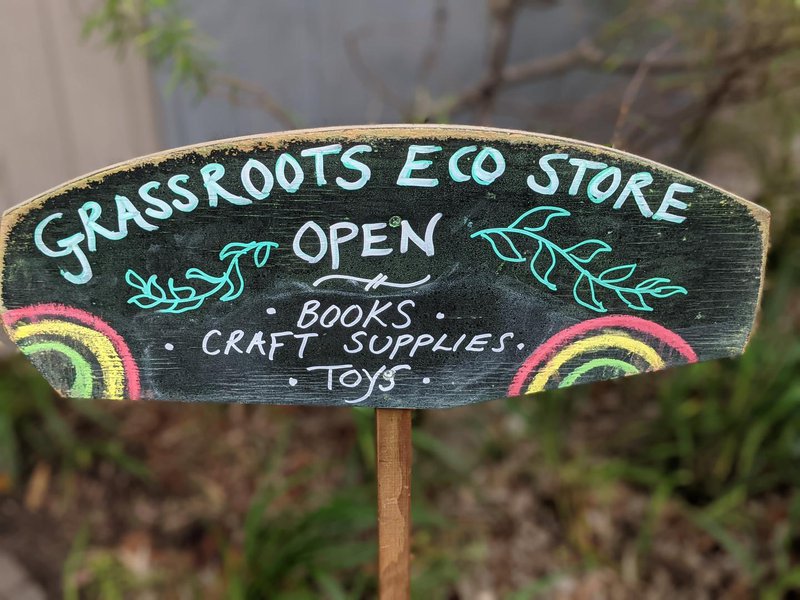 GRASSROOTS ECO STORE
OPEN
• BOOKS •
• CRAFT SUPPLIES •
• TOYS •